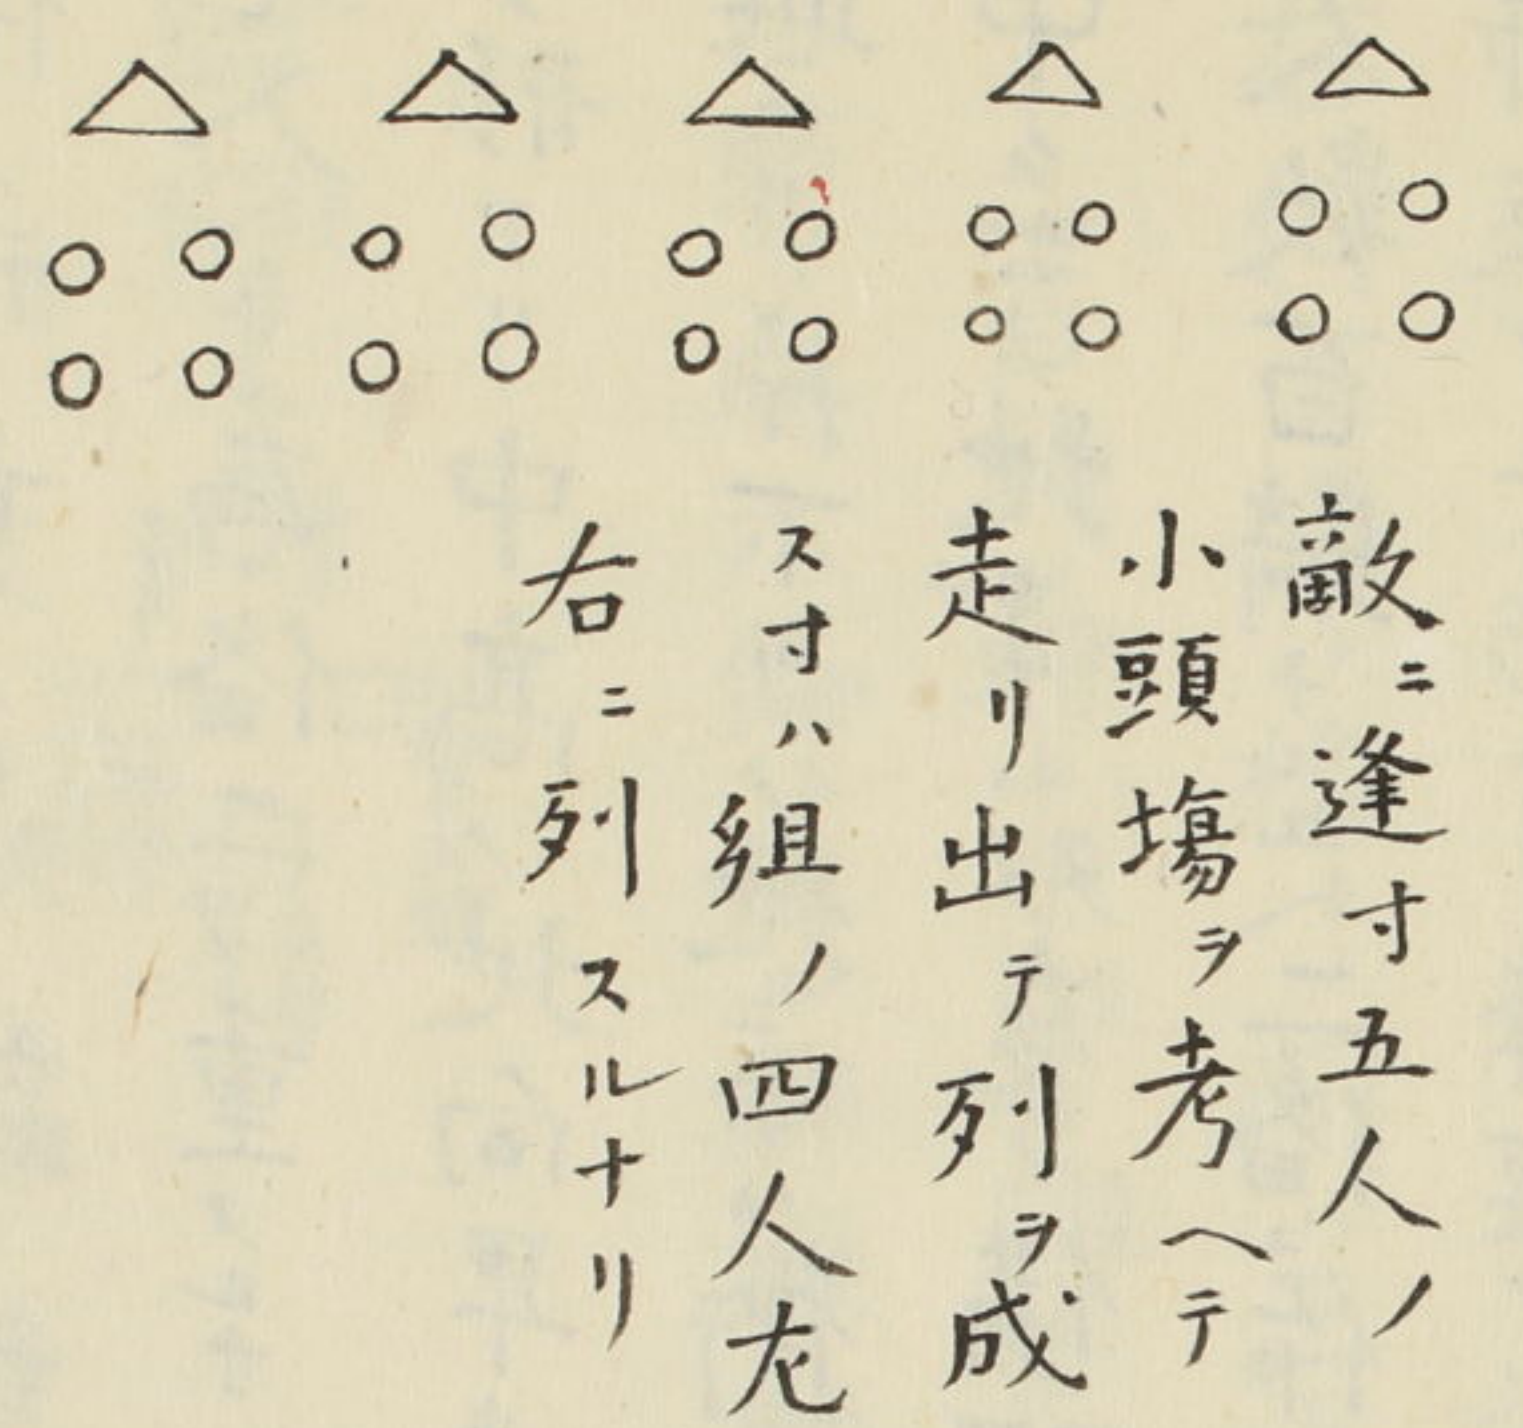 敵ニ逢寸五人ノ
小頭塲ヲ考ヘテ
走リ出テ列ヲ成
ス寸ハ組ノ四人左
右ニ列スルナリ